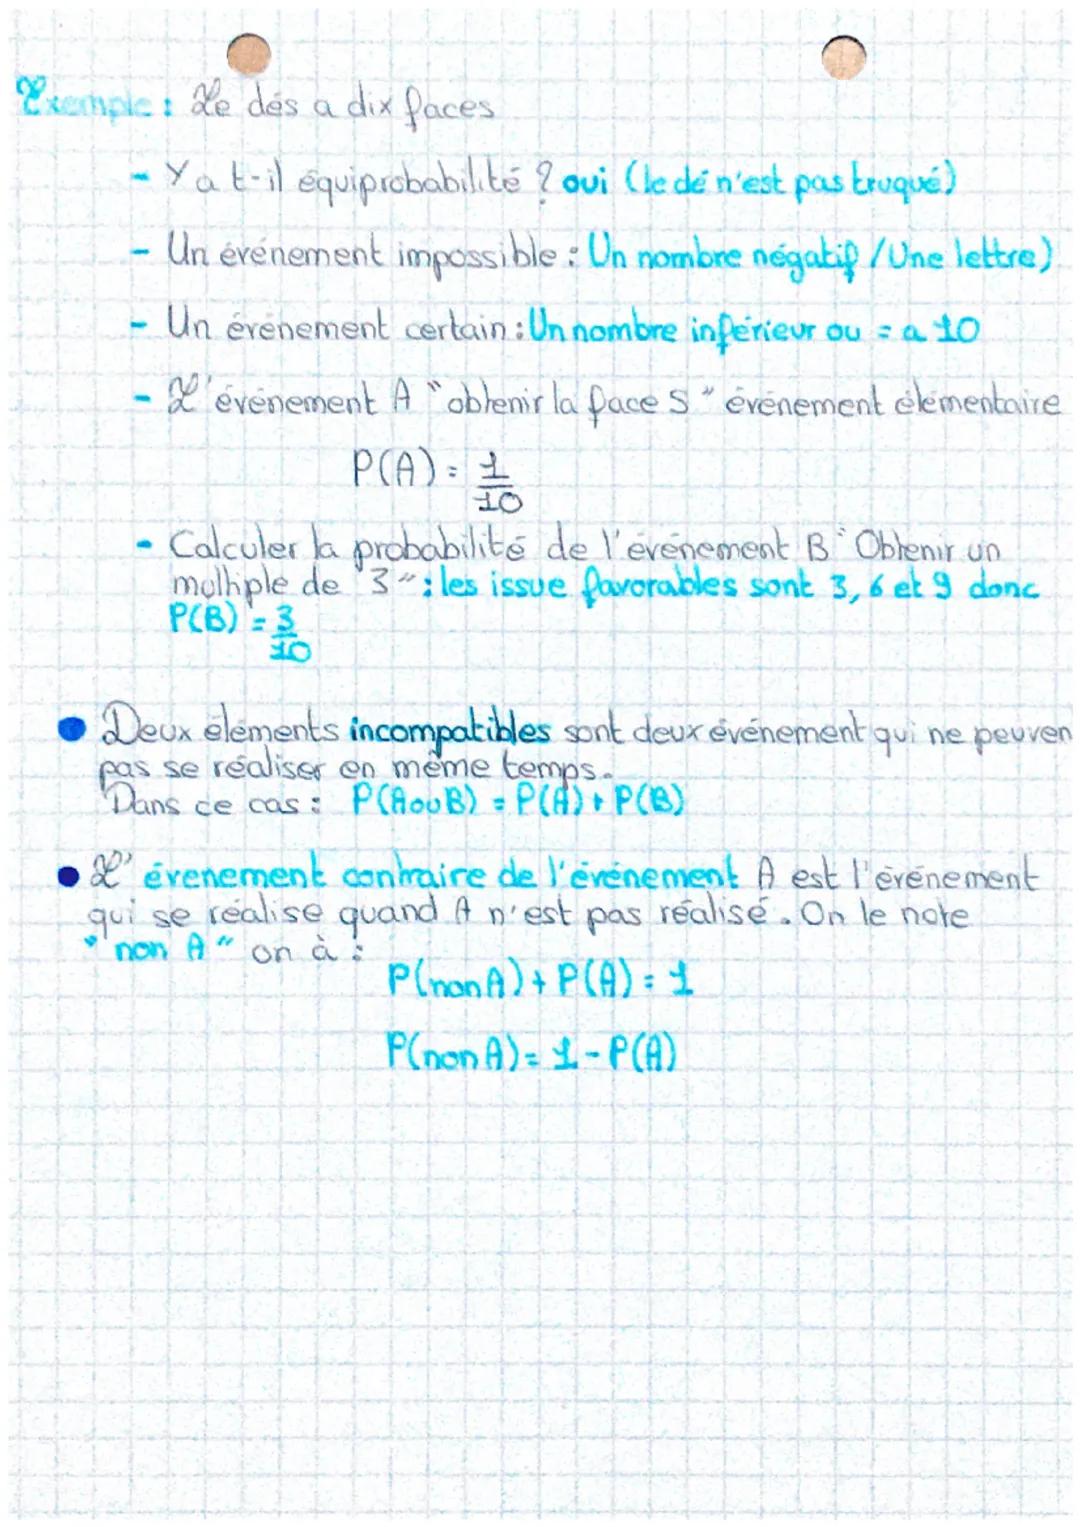 Exemple : Le dés a dix faces
- Y a t-il équiprobabilité ? oui (le dé n'est pas truqué)
- Un événement impossible : Un nombre négatif / Une lettre)
- Un événement certain : Un nombre inférieur ou = a 10
- L'événement A "obtenir la face 5" événement élémentaire
P(A) = 1/10
- Calculer la probabilité de l'événement B "Obtenir un
multiple de 3" : les issue favorables sont 3, 6 et 9 donc
P(B) = 3/10
• Deux éléments incompatibles sont deux événement qui ne peuven
pas se réaliser en même temps.
Dans ce cas : P(A ou B) = P(A) + P(B)
• L'évenement contraire de l'événement A est l'événement
qui se réalise quand A n'est pas réalisé. On le note
"non A" on à :
P(non A) + P(A) = 1
P(non A) = 1 - P(A)